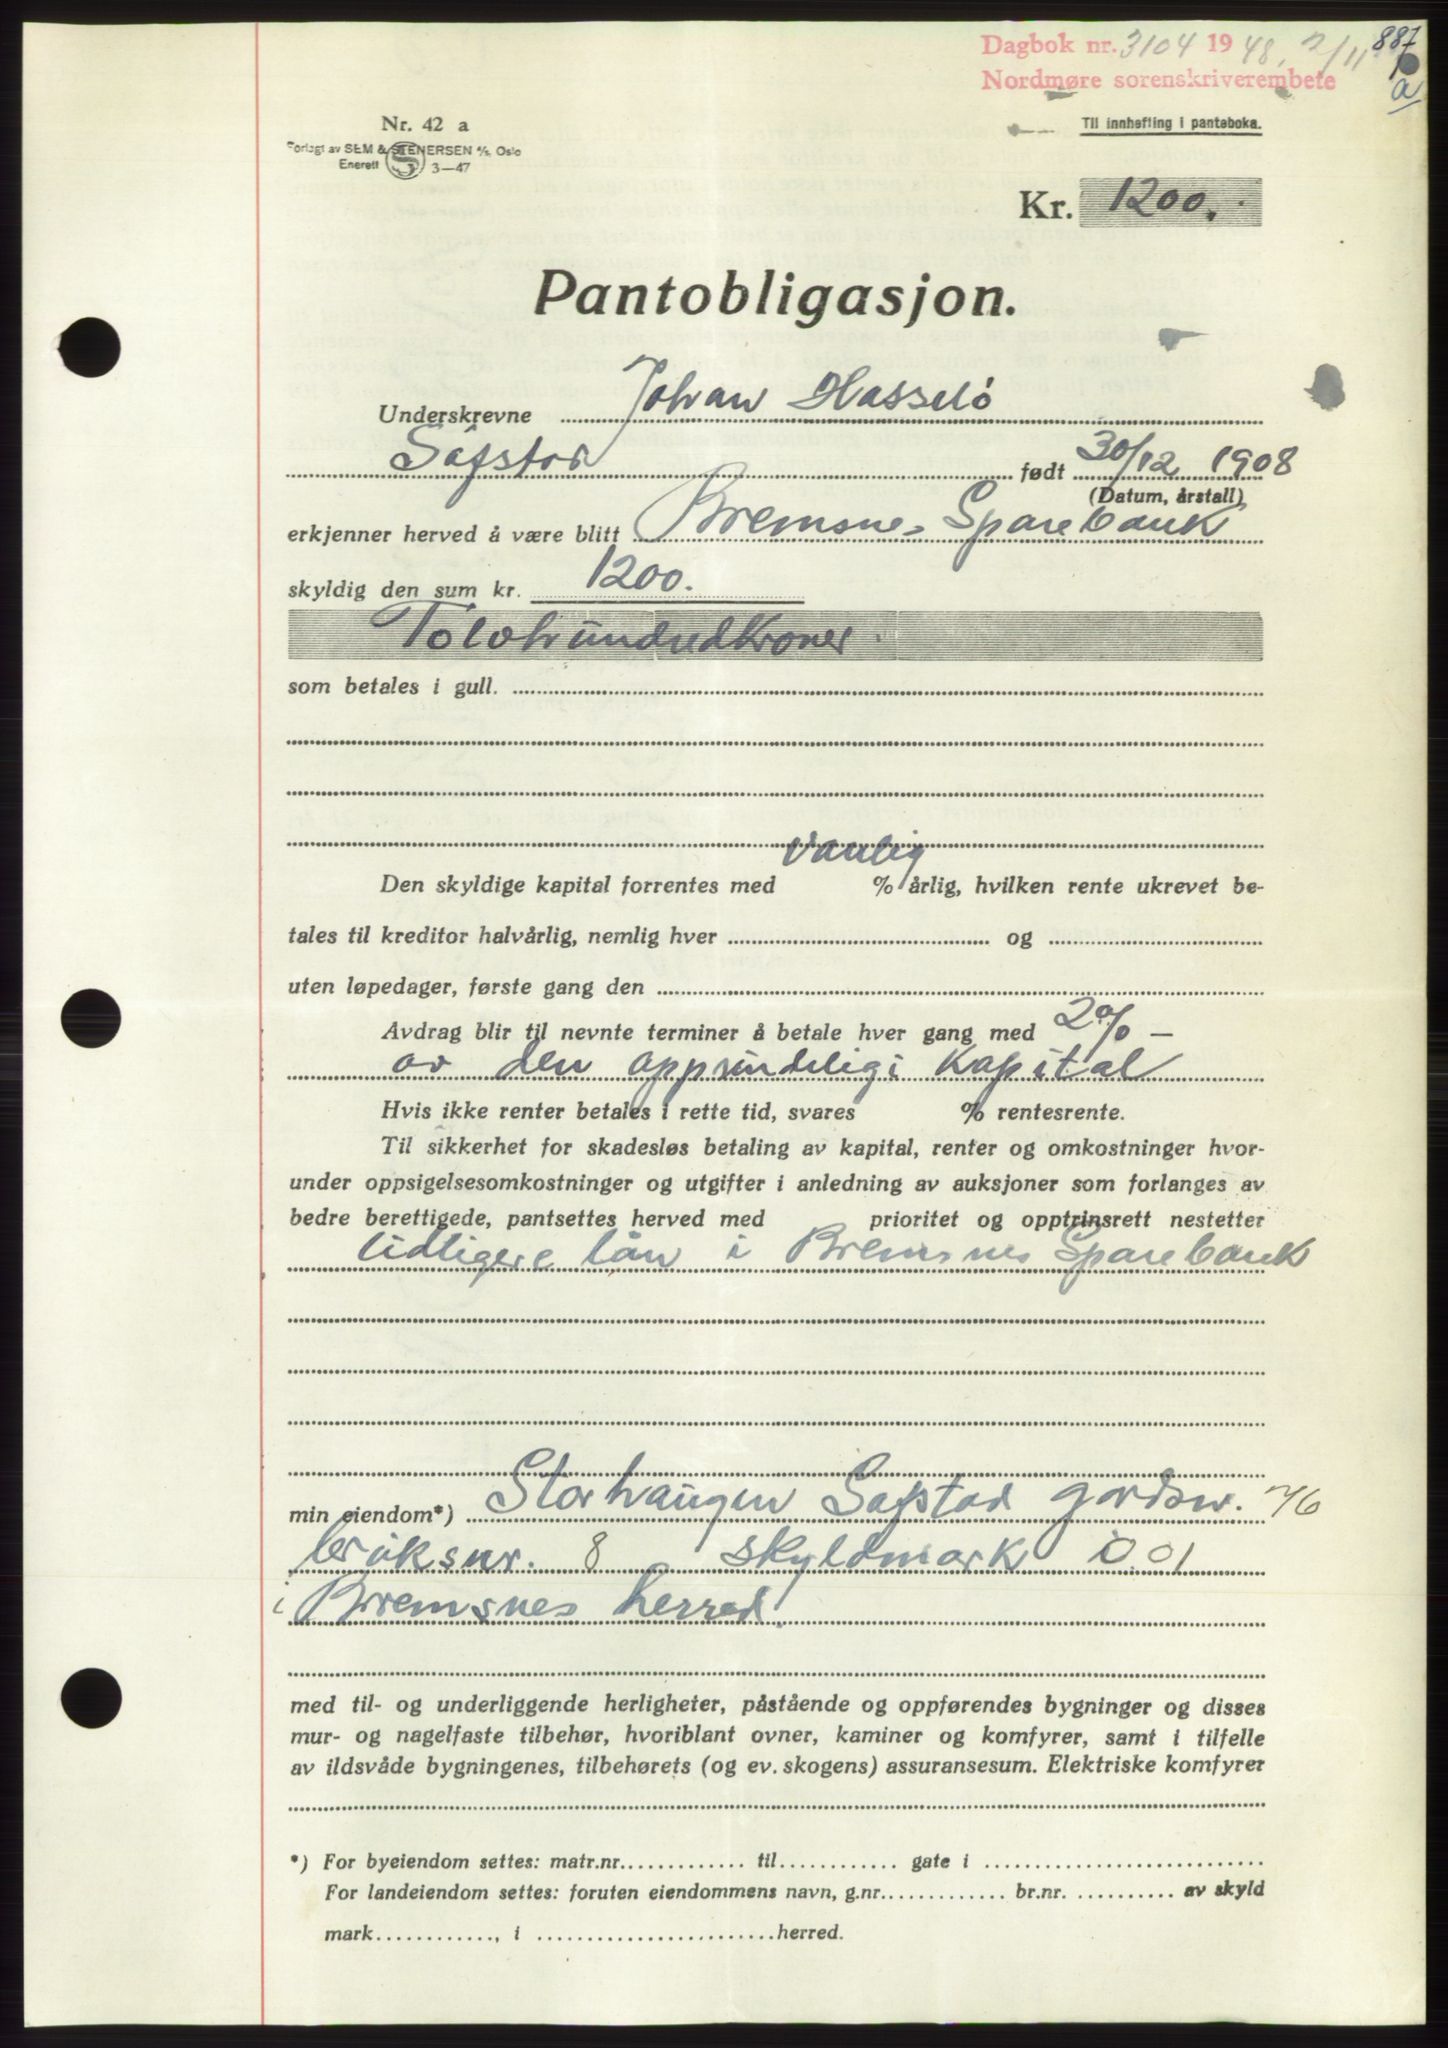 Dagbok nr. 3104 1948, 2/11 887
Nordmøre sorenskriverembete
a
Nr. 42 a
Forlagt av SEM & STENERSEN A/S, Oslo
Enerett 3—47
Til innhefting i panteboka.
Kr. 1200.
Pantobligasjon.
Underskrevne Johan Hasselö
Søfstad født 30/12 1908
(Datum, årstall)
erkjenner herved å være blitt Bremsnes Sparebank
skyldig den sum kr. 1200.
Tolvhundredkroner
som betales i gull.
vanlig
Den skyldige kapital forrentes med % årlig, hvilken rente ukrevet be-
tales til kreditor halvårlig, nemlig hver og
uten løpedager, første gang den
Avdrag blir til nevnte terminer å betale hver gang med 2% —
av den oppründeligi kapital
Hvis ikke renter betales i rette tid, svares % rentesrente.
Til sikkerhet for skadesløs betaling av kapital, renter og omkostninger hvor-
under oppsigelsesomkostninger og utgifter i anledning av auksjoner som forlanges av
bedre berettigede, pantsettes herved med prioritet og opptrinsrett nestetter
tidligere lån i Bremsnes Sparebank
min eiendom*) Storhaugen Søfstad gårdsnr. 76
bruksnr. 8 skyldmark 0 01
i Bremsnes herred
med til- og underliggende herligheter, påstående og oppførendes bygninger og disses
mur- og nagelfaste tilbehør, hvoriblant ovner, kaminer og komfyrer, samt i tilfelle
av ildsvåde bygningenes, tilbehørets (og ev. skogens) assuransesum. Elektriske komfyrer
*) For byeiendom settes: matr.nr. til gate i
For landeiendom settes: foruten eiendommens navn, g.nr. br.nr. av skyld
mark , i herred.